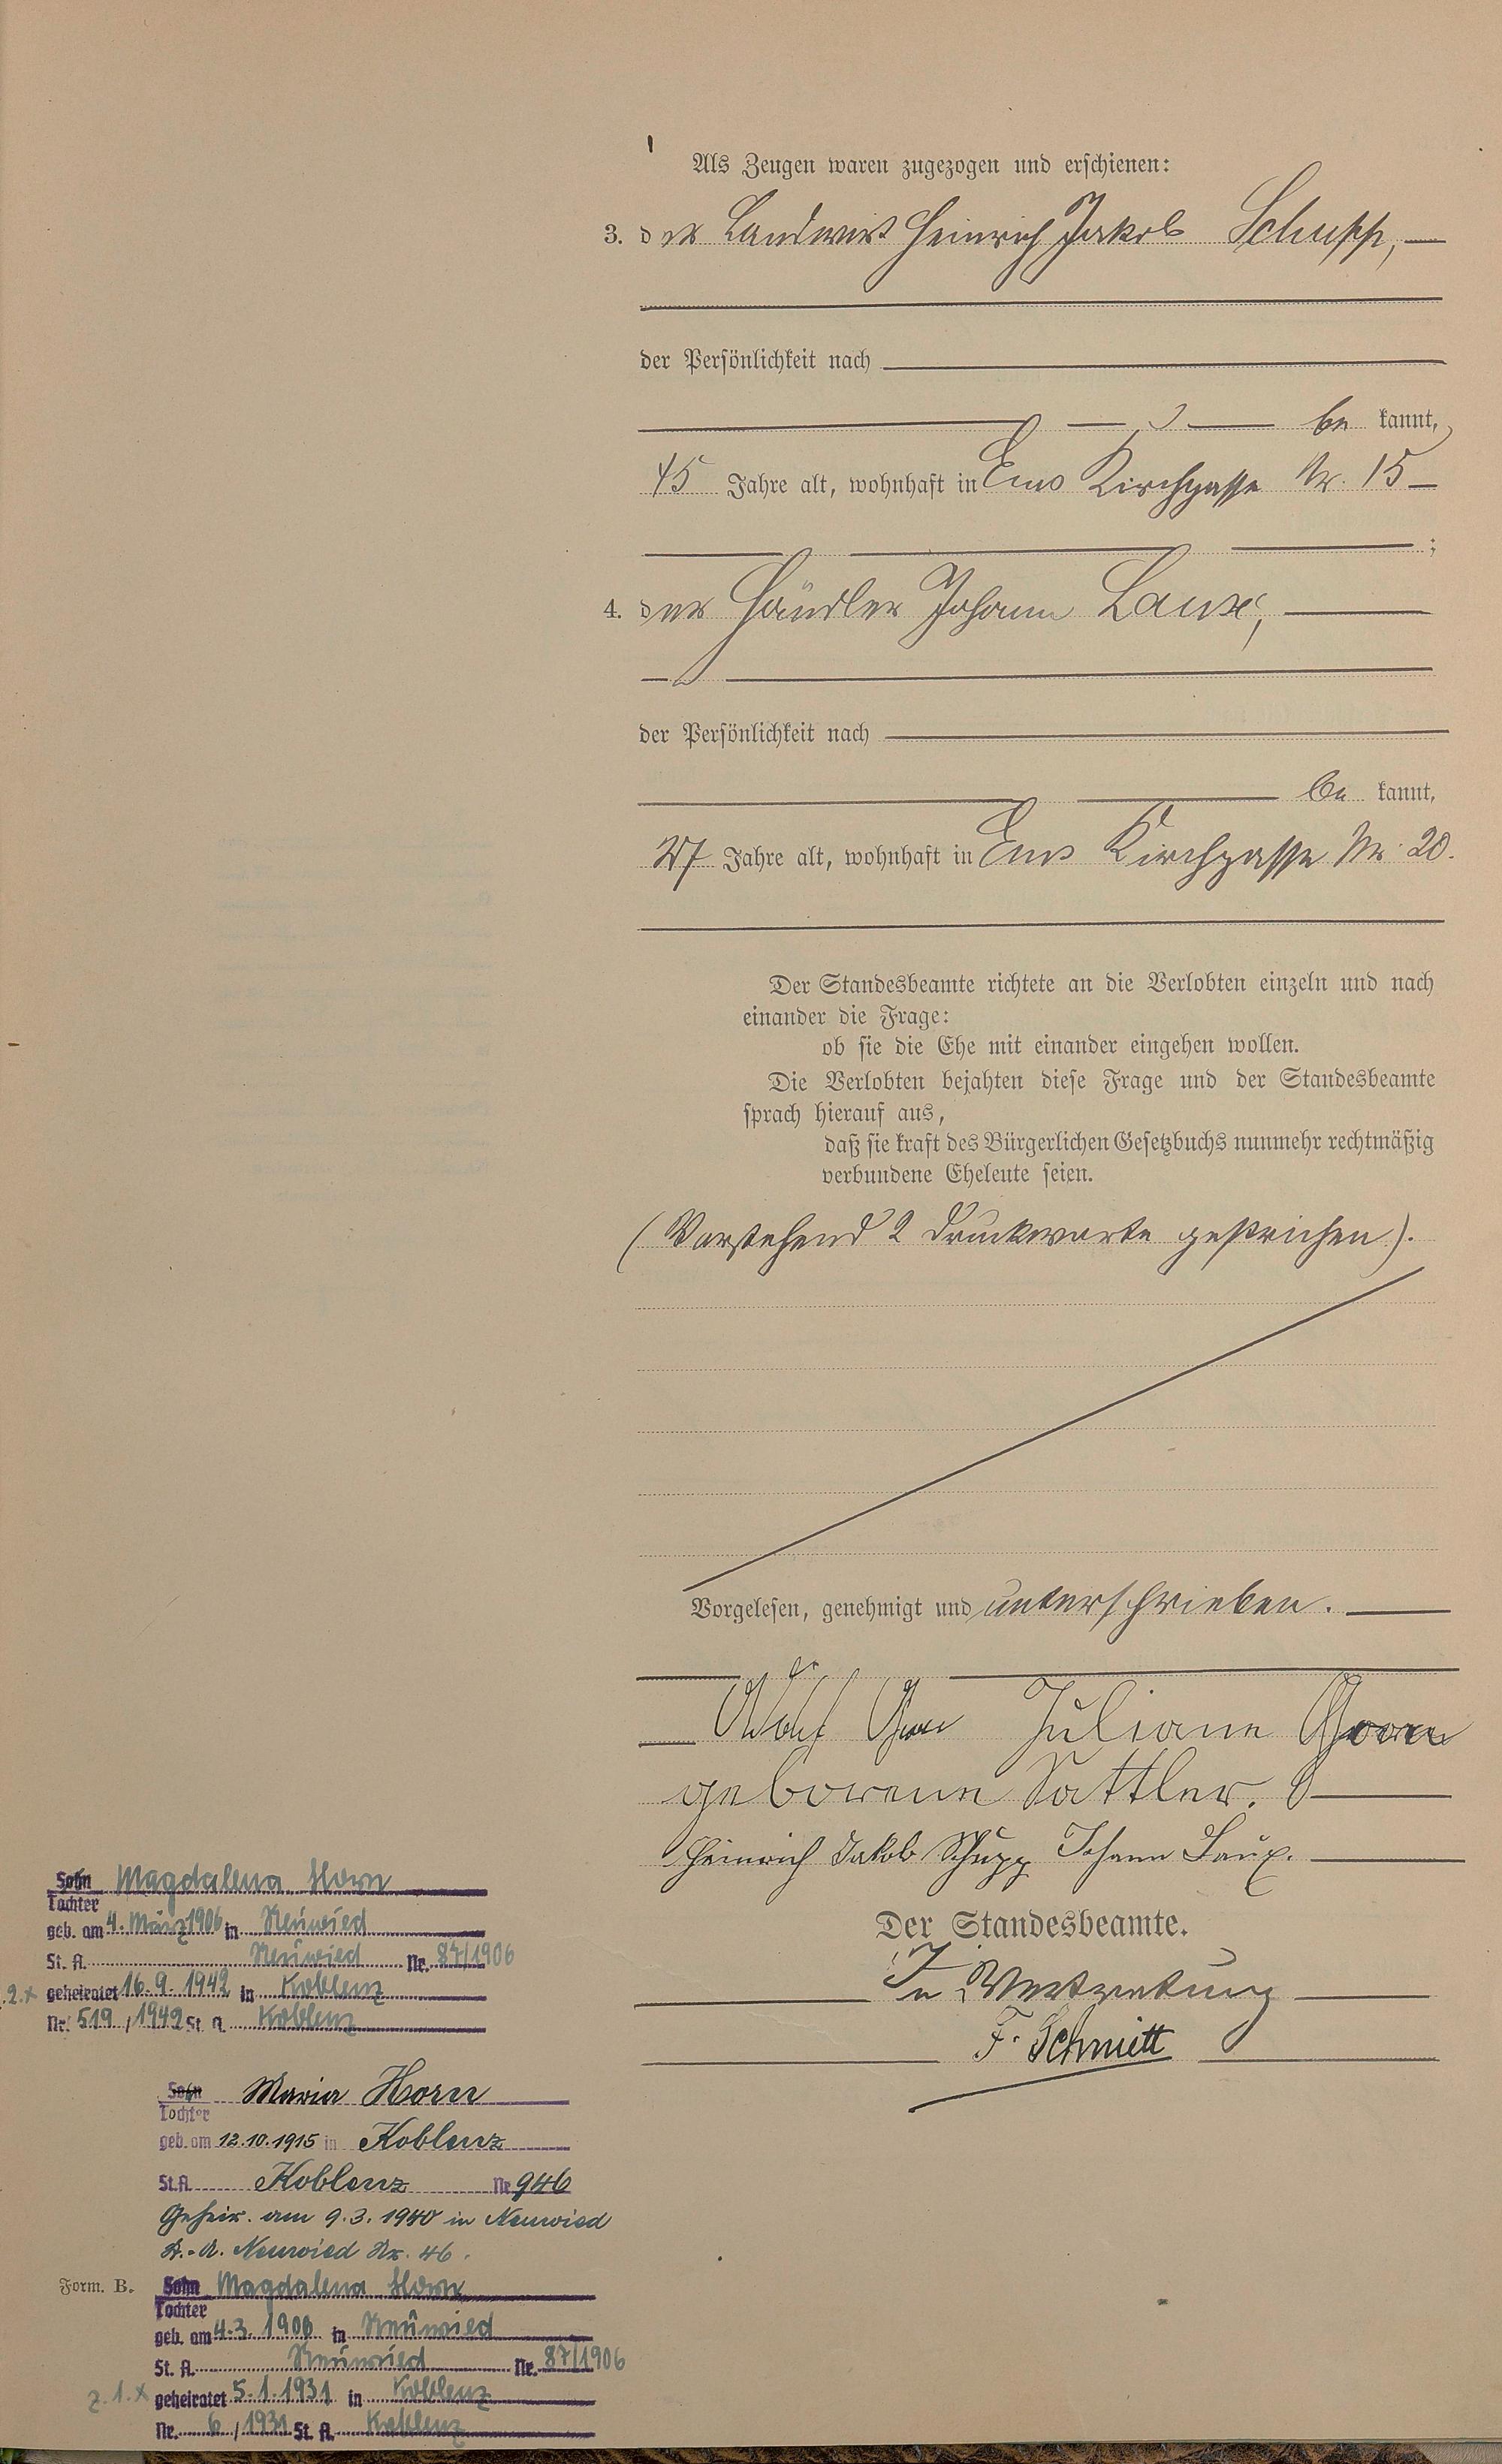 Als Zeugen waren zugezogen und erschienen:
3. der Landwirt Heinrich Jakob Schupp,
der Persönlichkeit nach
be kannt,
45 Jahre alt, wohnhaft in Ems Kirchgasse Nr. 15
;
4. der Händler Johann Laux,
der Persönlichkeit nach
be kannt,
27 Jahre alt, wohnhaft in Ems Kirchgasse Nr. 20.
Der Standesbeamte richtete an die Verlobten einzeln und nach
einander die Frage:
ob sie die Ehe mit einander eingehen wollen.
Die Verlobten bejahten diese Frage und der Standesbeamte
sprach hierauf aus,
daß sie kraft des Bürgerlichen Gesetzbuchs nunmehr rechtmäßig
verbundene Eheleute seien.
(Vorstehend 2 Druckworte gestrichen).
Vorgelesen, genehmigt und unterschrieben.
Juliane Horn
geborene Sattler.
Heinrich Jakob Schupp Johann Laux.
Der Standesbeamte.
In Vertretung
F. Schmitt
Sohn Magdalena Horn
Tochter
geb. am 4. März 1906 in Neuwied
St. A. Neuwied Nr. 87/1906
2. x geheiratet 16.9.1942 in Koblenz
Nr. 519 / 1942 St. A. Koblenz
Sohn Maria Horn
Tochter
geb. am 12.10.1915 in Koblenz
St.A. Koblenz Nr. 946
Geheir. am 9.3.1940 in Neuwied
St.-A. Neuwied Nr. 46.
Form. B.
Sohn Magdalena Horn
Tochter
geb. am 4.3.1906 in Neuwied
St. A. Neuwied Nr. 87/1906
z. 1. x geheiratet 5.1.1931 in Koblenz
Nr. 6 / 1931 St. A. Koblenz